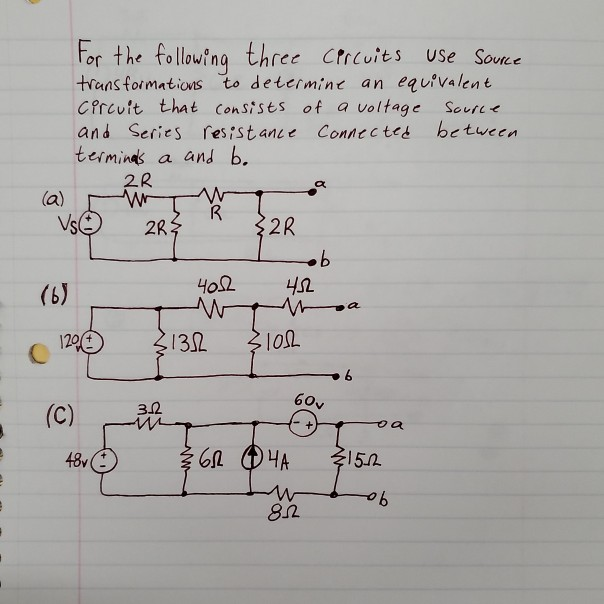 For the following three circuits use source
transformations to determine an equivalent
circuit that consists of a voltage source
and series resistance connected between
terminals a and b.
(a)
2R
R
a
Vs
2R
2R
b
(b)
40Ω
4Ω
a
120v
13Ω
10Ω
b
(C)
3Ω
60v
a
48v
6Ω
4A
15Ω
8Ω
b